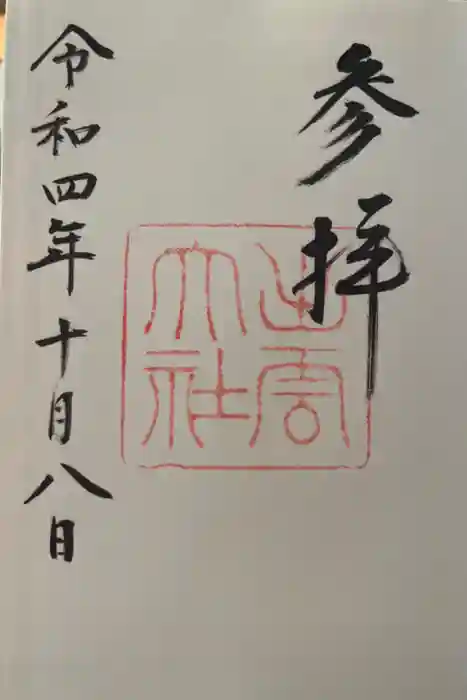 参拝
出雲
大社
令和四年十月八日